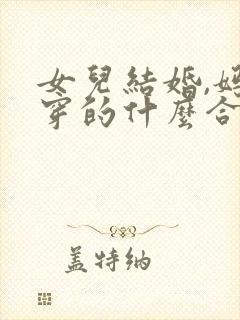 女兒結婚,媽
穿的什麼合
蓋特納